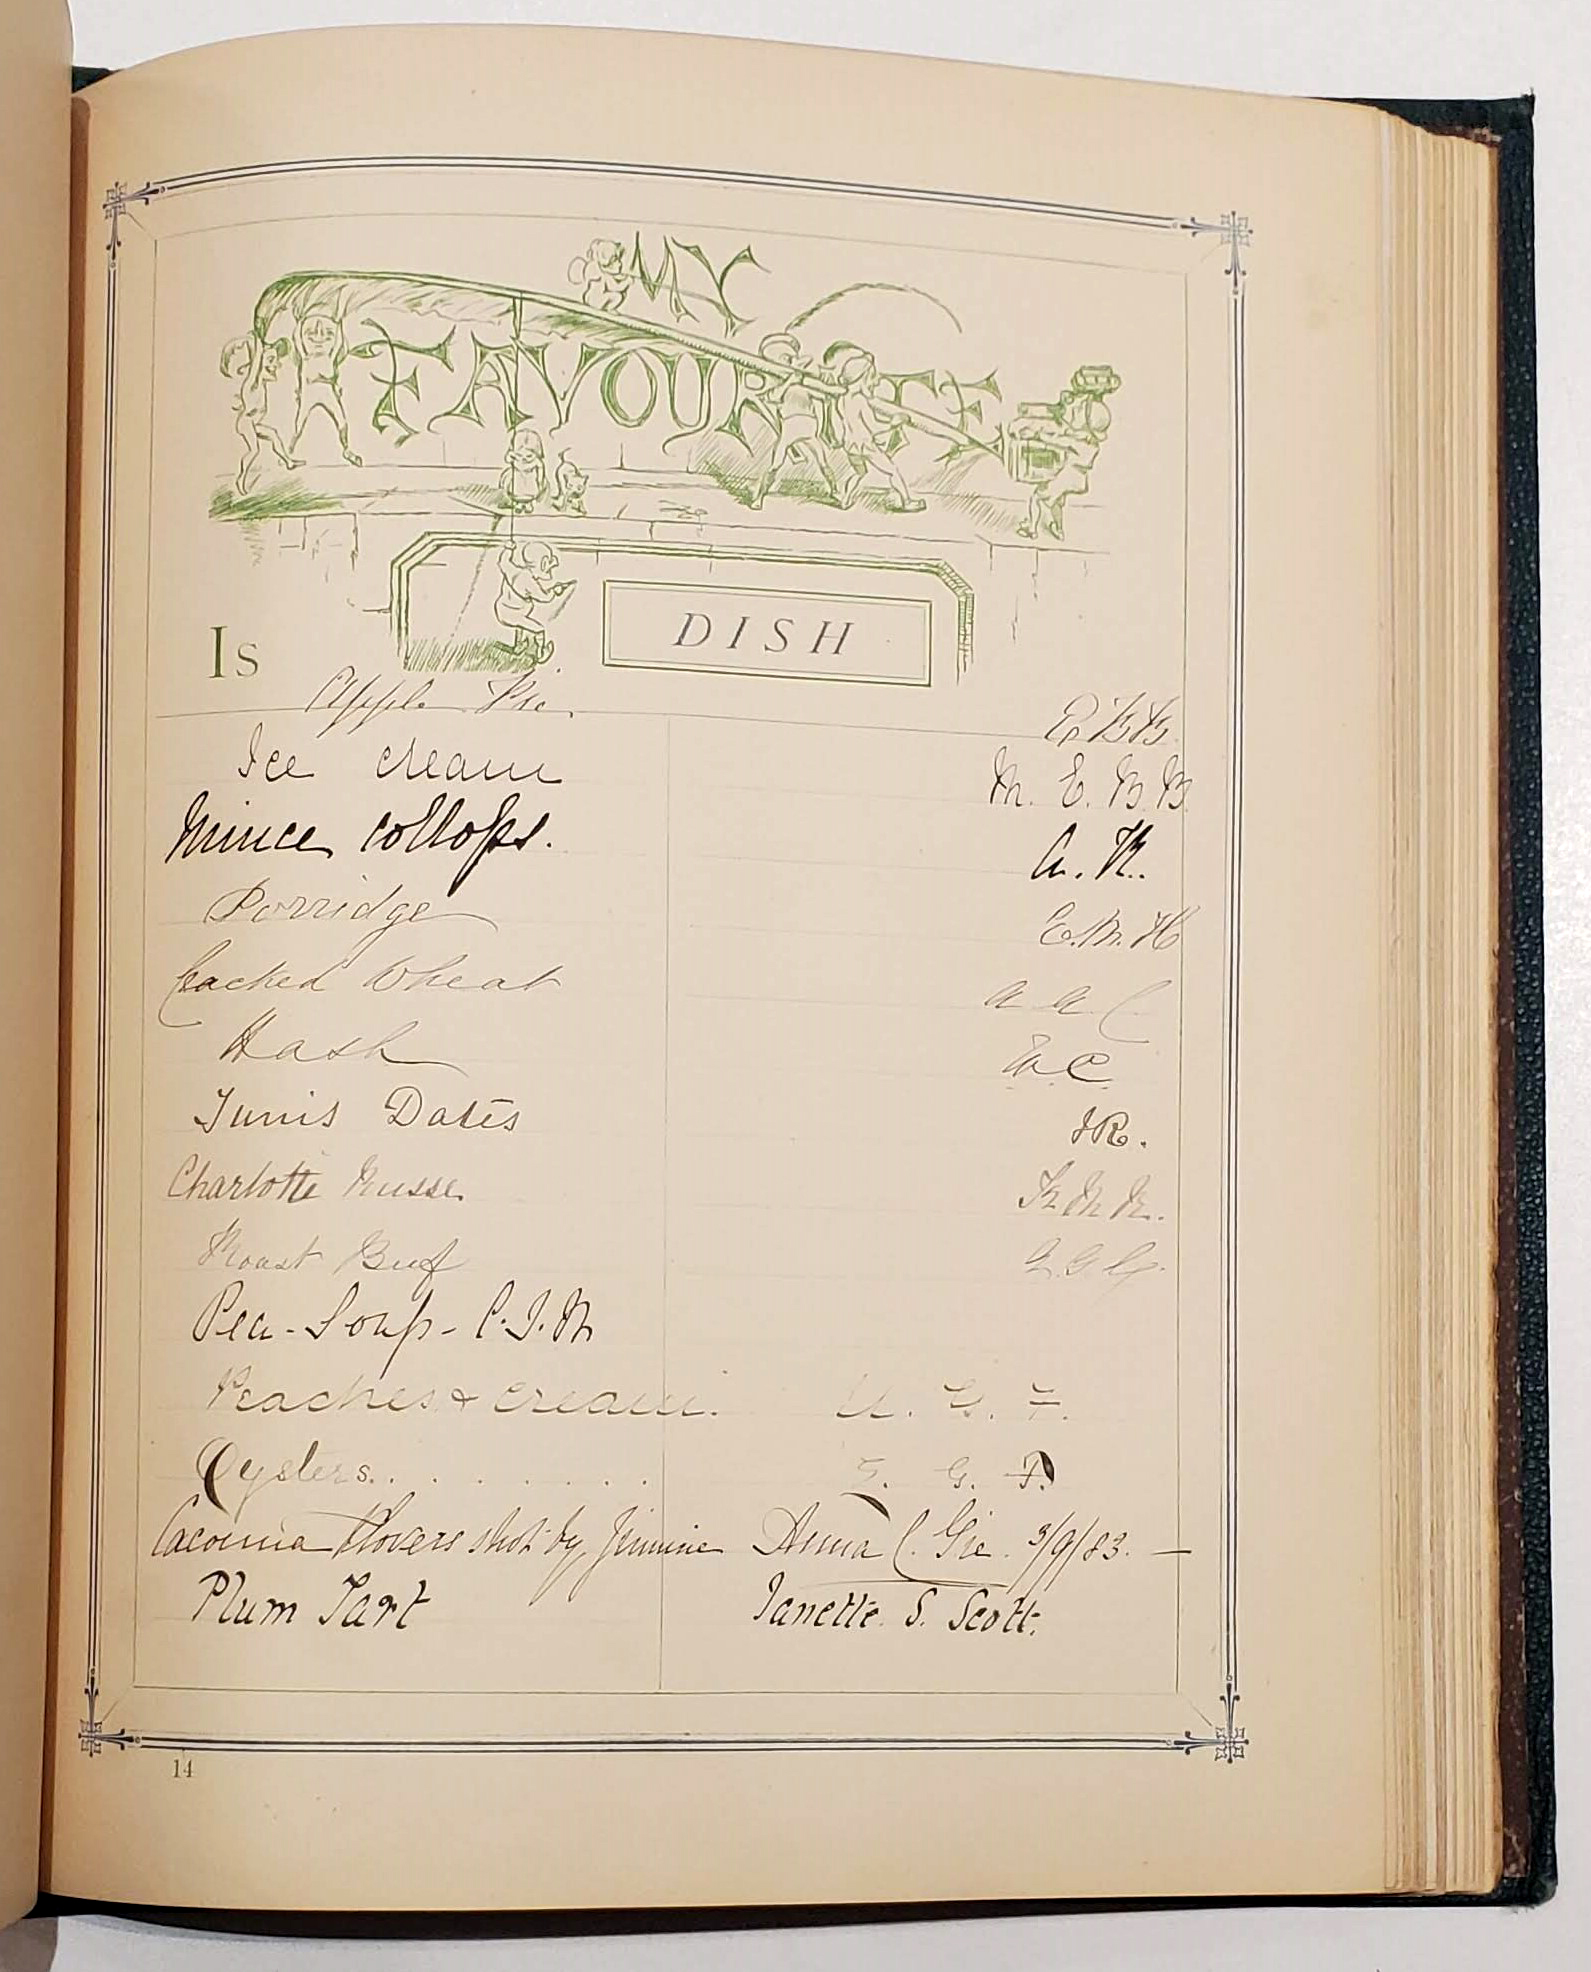 MY
FAVOURITE
DISH
Is
Apple Pie. E.B.B.
Ice cream M. E. B. B.
Mince collops. A. R.
Porridge E. M. H
Cracked Wheat A A C
Hash W. C.
Tunis Dates J R.
Charlotte Russe
Roast Beef
Pea-Soup - C. J. M
Peaches & cream. U. G. F.
Oysters. . . . . . . . E. G. F.
Cacouna Plovers shot by Jimmie Anna C. Gie. 3/9/83. —
Plum Tart Janette S. Scott.
14